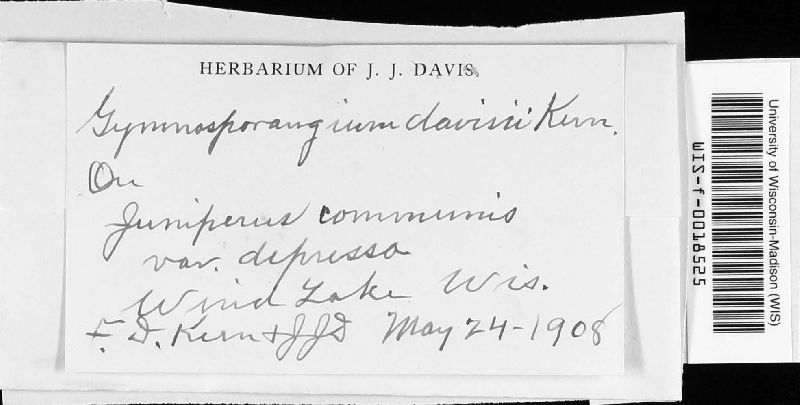 HERBARIUM OF J. J. DAVIS.
Gymnosporangium davisii Kern.
On
Juniperus communis
var. depressa
Wind Lake Wis.
F. D. Kern & JJD May 24-1908
University of Wisconsin-Madison (WIS)
WIS-f-0018525